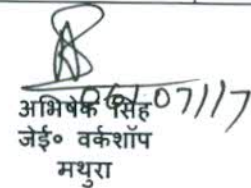 06/07/17
अभिषेक सिंह
जेई० वर्कशॉप
मथुरा